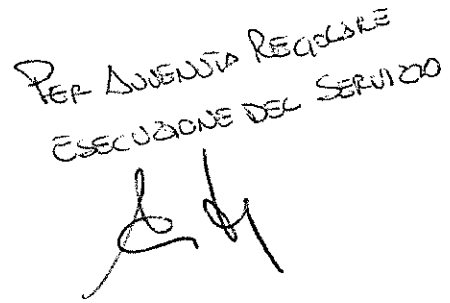 PER AVVENUTA REGOLARE
ESECUZIONE DEL SERVIZIO